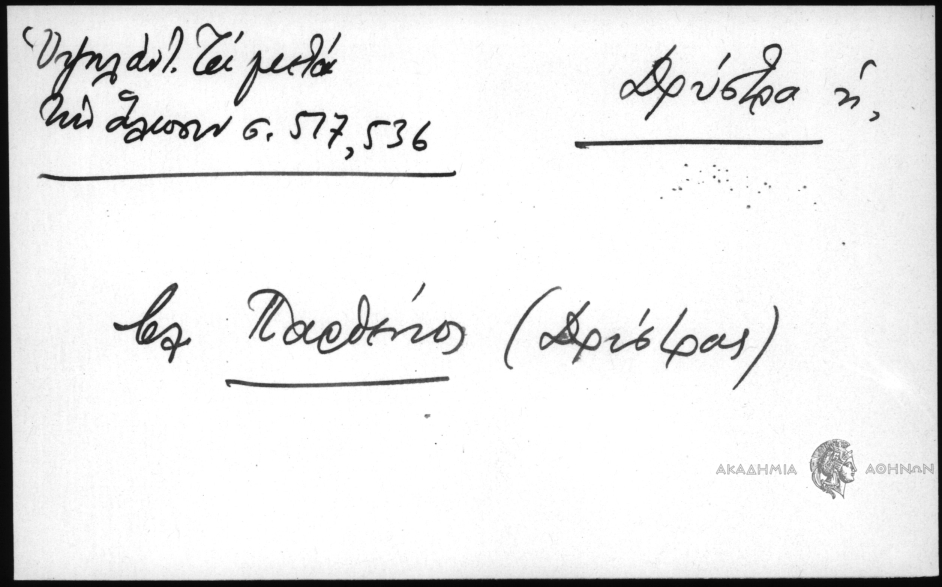 Ὑψηλάντ. Τά μετά
τήν ἅλωσιν σ. 517, 536
Δρύστρα ἡ,
βλ Παρθένιος (Δρύστρας)
ΑΚΑΔΗΜΙΑ ΑΘΗΝΩΝ